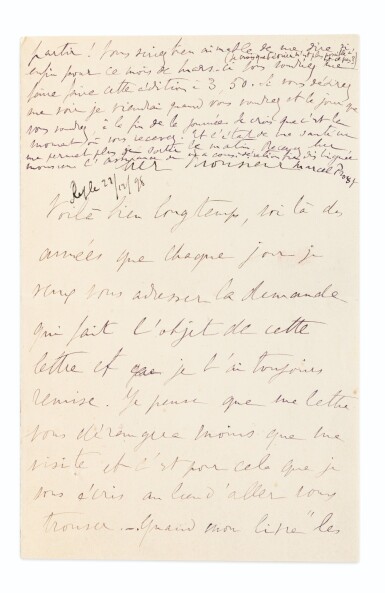 partir ! Vous seriez bien aimable de me dire si
enfin pour ce mois de mars-ci vous voudriez me
faire faire cette édition à 3,50. Si vous désirez
me voir je viendrai quand vous voudrez et le jour que
vous voudrez à la fin de la journée. Je crois que c'est le
moment où vous recevez. Et l'état de ma santé ne
me permet plus de sortir le matin. Recevez cher
monsieur l'assurance de ma considération très distinguée
Marcel Proust
Cher Monsieur
Rép le 29/12/98
Voilà bien longtemps, voilà des
années que chaque jour je
veux vous adresser la demande
qui fait l'objet de cette
lettre et que je l'ai toujours
remise. Je pense que une lettre
vous dérangera moins que une
visite et c'est pour cela que je
vous écris au lieu d'aller vous
trouver. — Quand mon livre "les